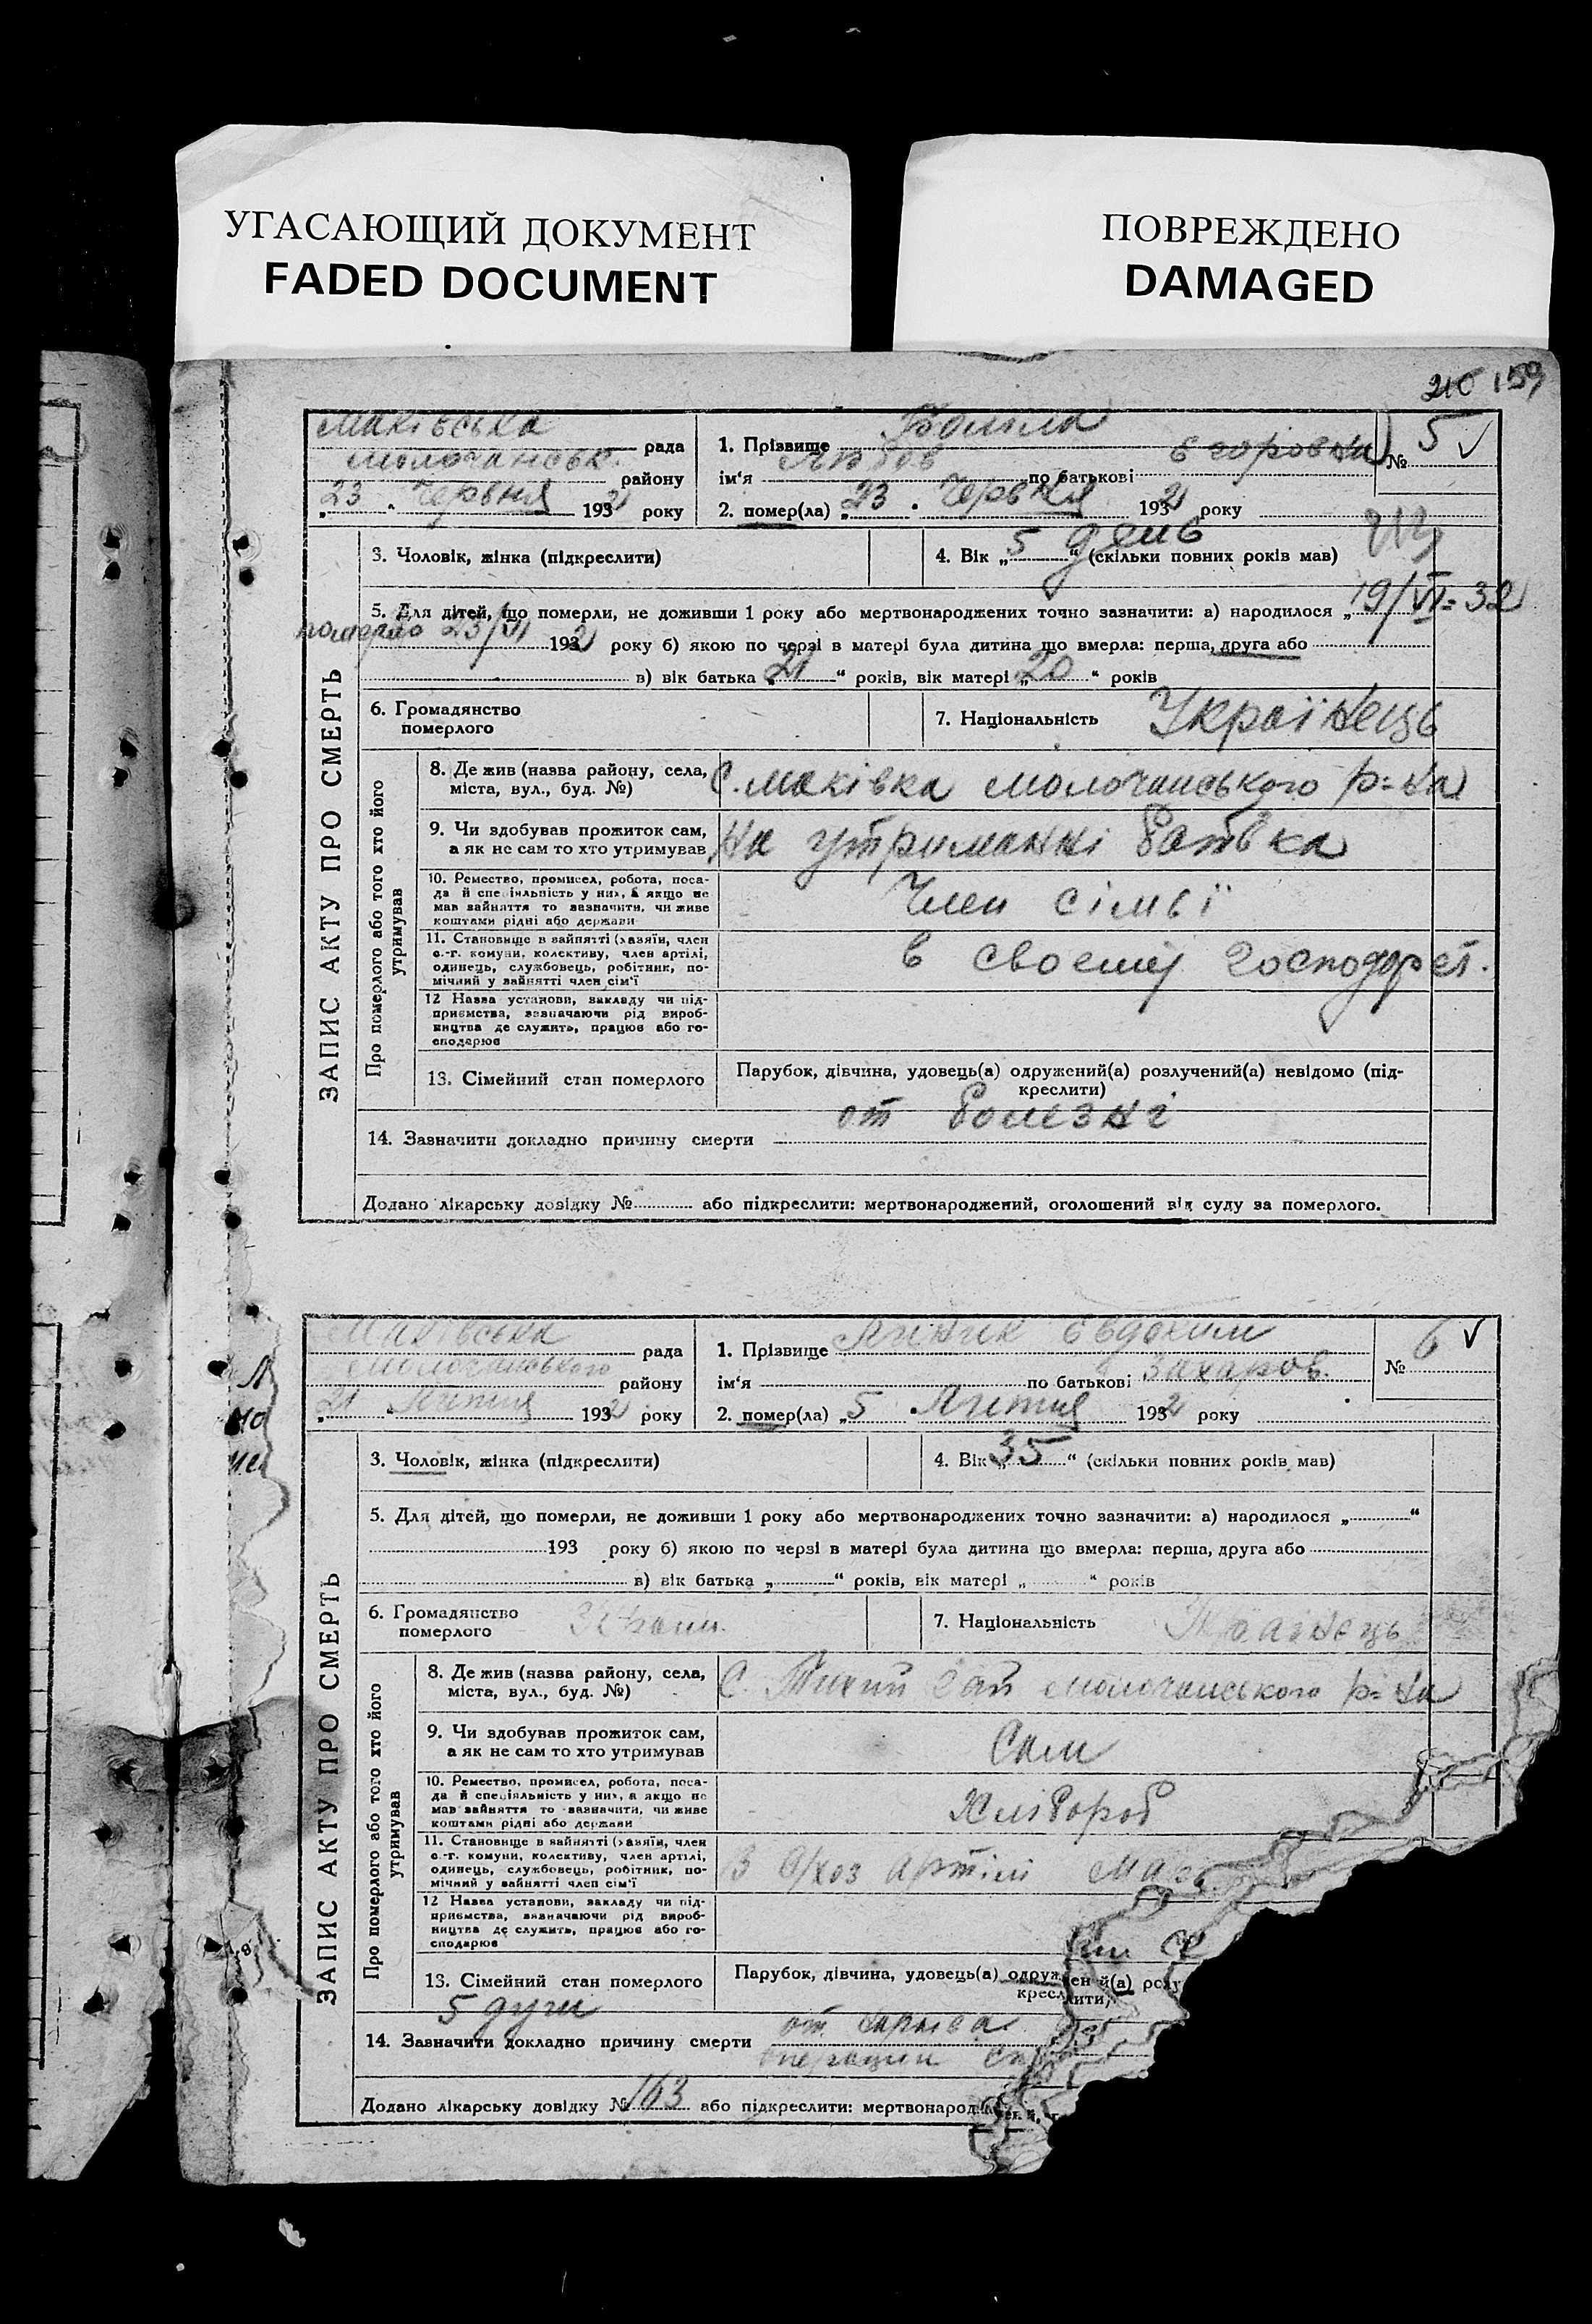 УГАСАЮЩИЙ ДОКУМЕНТ
FADED DOCUMENT
ПОВРЕЖДЕНО
DAMAGED
210 159
ЗАПИС АКТУ ПРО СМЕРТЬ
Маківська рада
Молочанськ. району
„23 " Червня 1932 року
1. Прізвище
ім'я Любов по батькові Єгоровна
№ 5 ✓
2. помер(ла) „23 " Червня 1932 року
3. Чоловік, жінка (підкреслити)
4. Вік „5 день" (скільки повних років мав)
5. Для дітей, що померли, не доживши 1 року або мертвонароджених точно зазначити: а) народилося „19/VI-32
померло 23/VI 1932 року б) якою по черзі в матері була дитина що вмерла: перша, друга або
в) вік батька „21" років, вік матері „20" років
6. Громадянство померлого
7. Національність Українець
Про померлого або того хто його утримував
8. Де жив (назва району, села, міста, вул., буд. №) С. Маківка Молочанського р-на
9. Чи здобував прожиток сам, а як не сам то хто утримував На утриманні батька
10. Ремество, промисел, робота, посада й спеціяльність у них, а якщо не мав зайняття то зазначити, чи живе коштами рідні або держави Член сімьї
11. Становище в зайнятті (хазяїн, член с.-г. комуни, колективу, член артілі, одинець, службовець, робітник, помічний у зайнятті член сім'ї в своему господарст.
12 Назва установи, закладу чи підприємства, зазначаючи рід виробництва де служить, працює або господарює
13. Сімейний стан померлого Парубок, дівчина, удовець(а) одружений(а) розлучений(а) невідомо (підкреслити)
14. Зазначити докладно причину смерти от болезні
Додано лікарську довідку № або підкреслити: мертвонароджений, оголошений від суду за померлого.
ЗАПИС АКТУ ПРО СМЕРТЬ
Маківська рада
Молочанського району
„21 " Липня 1932 року
1. Прізвище Євдоким
ім'я по батькові Захаров.
№ 6 ✓
2. помер(ла) „5 " Липня 1932 року
3. Чоловік, жінка (підкреслити)
4. Вік „35" (скільки повних років мав)
5. Для дітей, що померли, не доживши 1 року або мертвонароджених точно зазначити: а) народилося „ "
193 року б) якою по черзі в матері була дитина що вмерла: перша, друга або
в) вік батька „ " років, вік матері „ " років
6. Громадянство померлого
7. Національність
Про померлого або того хто його утримував
8. Де жив (назва району, села, міста, вул., буд. №) С. Тихий Гай Молочанського р-на
9. Чи здобував прожиток сам, а як не сам то хто утримував Сам
10. Ремество, промисел, робота, посада й спеціяльність у них, а якщо не мав зайняття то зазначити, чи живе коштами рідні або держави Хлібороб
11. Становище в зайнятті (хазяїн, член с.-г. комуни, колективу, член артілі, одинець, службовець, робітник, помічний у зайнятті член сім'ї В с/хоз артілі
12 Назва установи, закладу чи підприємства, зазначаючи рід виробництва де служить, працює або господарює
13. Сімейний стан померлого Парубок, дівчина, удовець(а) одружений(а) розлу
креслити)
5 душ
14. Зазначити докладно причину смерти от
операции
Додано лікарську довідку № 163 або підкреслити: мертвонароджений,